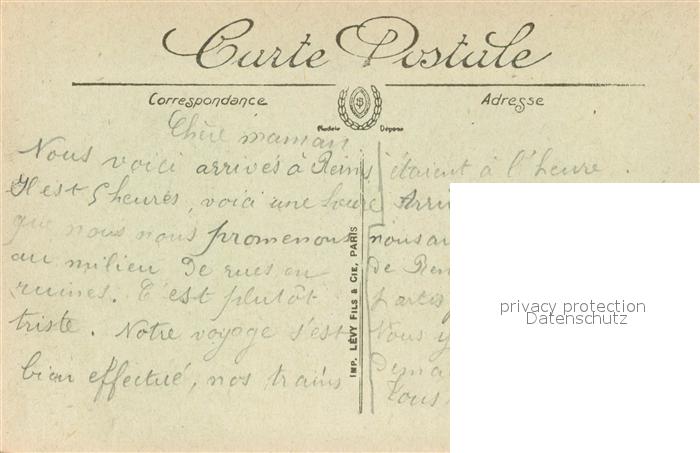 Carte Postale
Correspondance
Adresse
Modèle Déposé
Chère maman
Nous voici arrivés à Reims
Il est 5 heures, voici une heure
que nous nous promenons
au milieu de rues en
ruines. C'est plutôt
triste. Notre voyage s'est
bien effectué, nos trains
IMP. LÉVY FILS & CIE, PARIS
étaient à l'heure.
nous
de
Vous y
Tous
privacy protection
Datenschutz